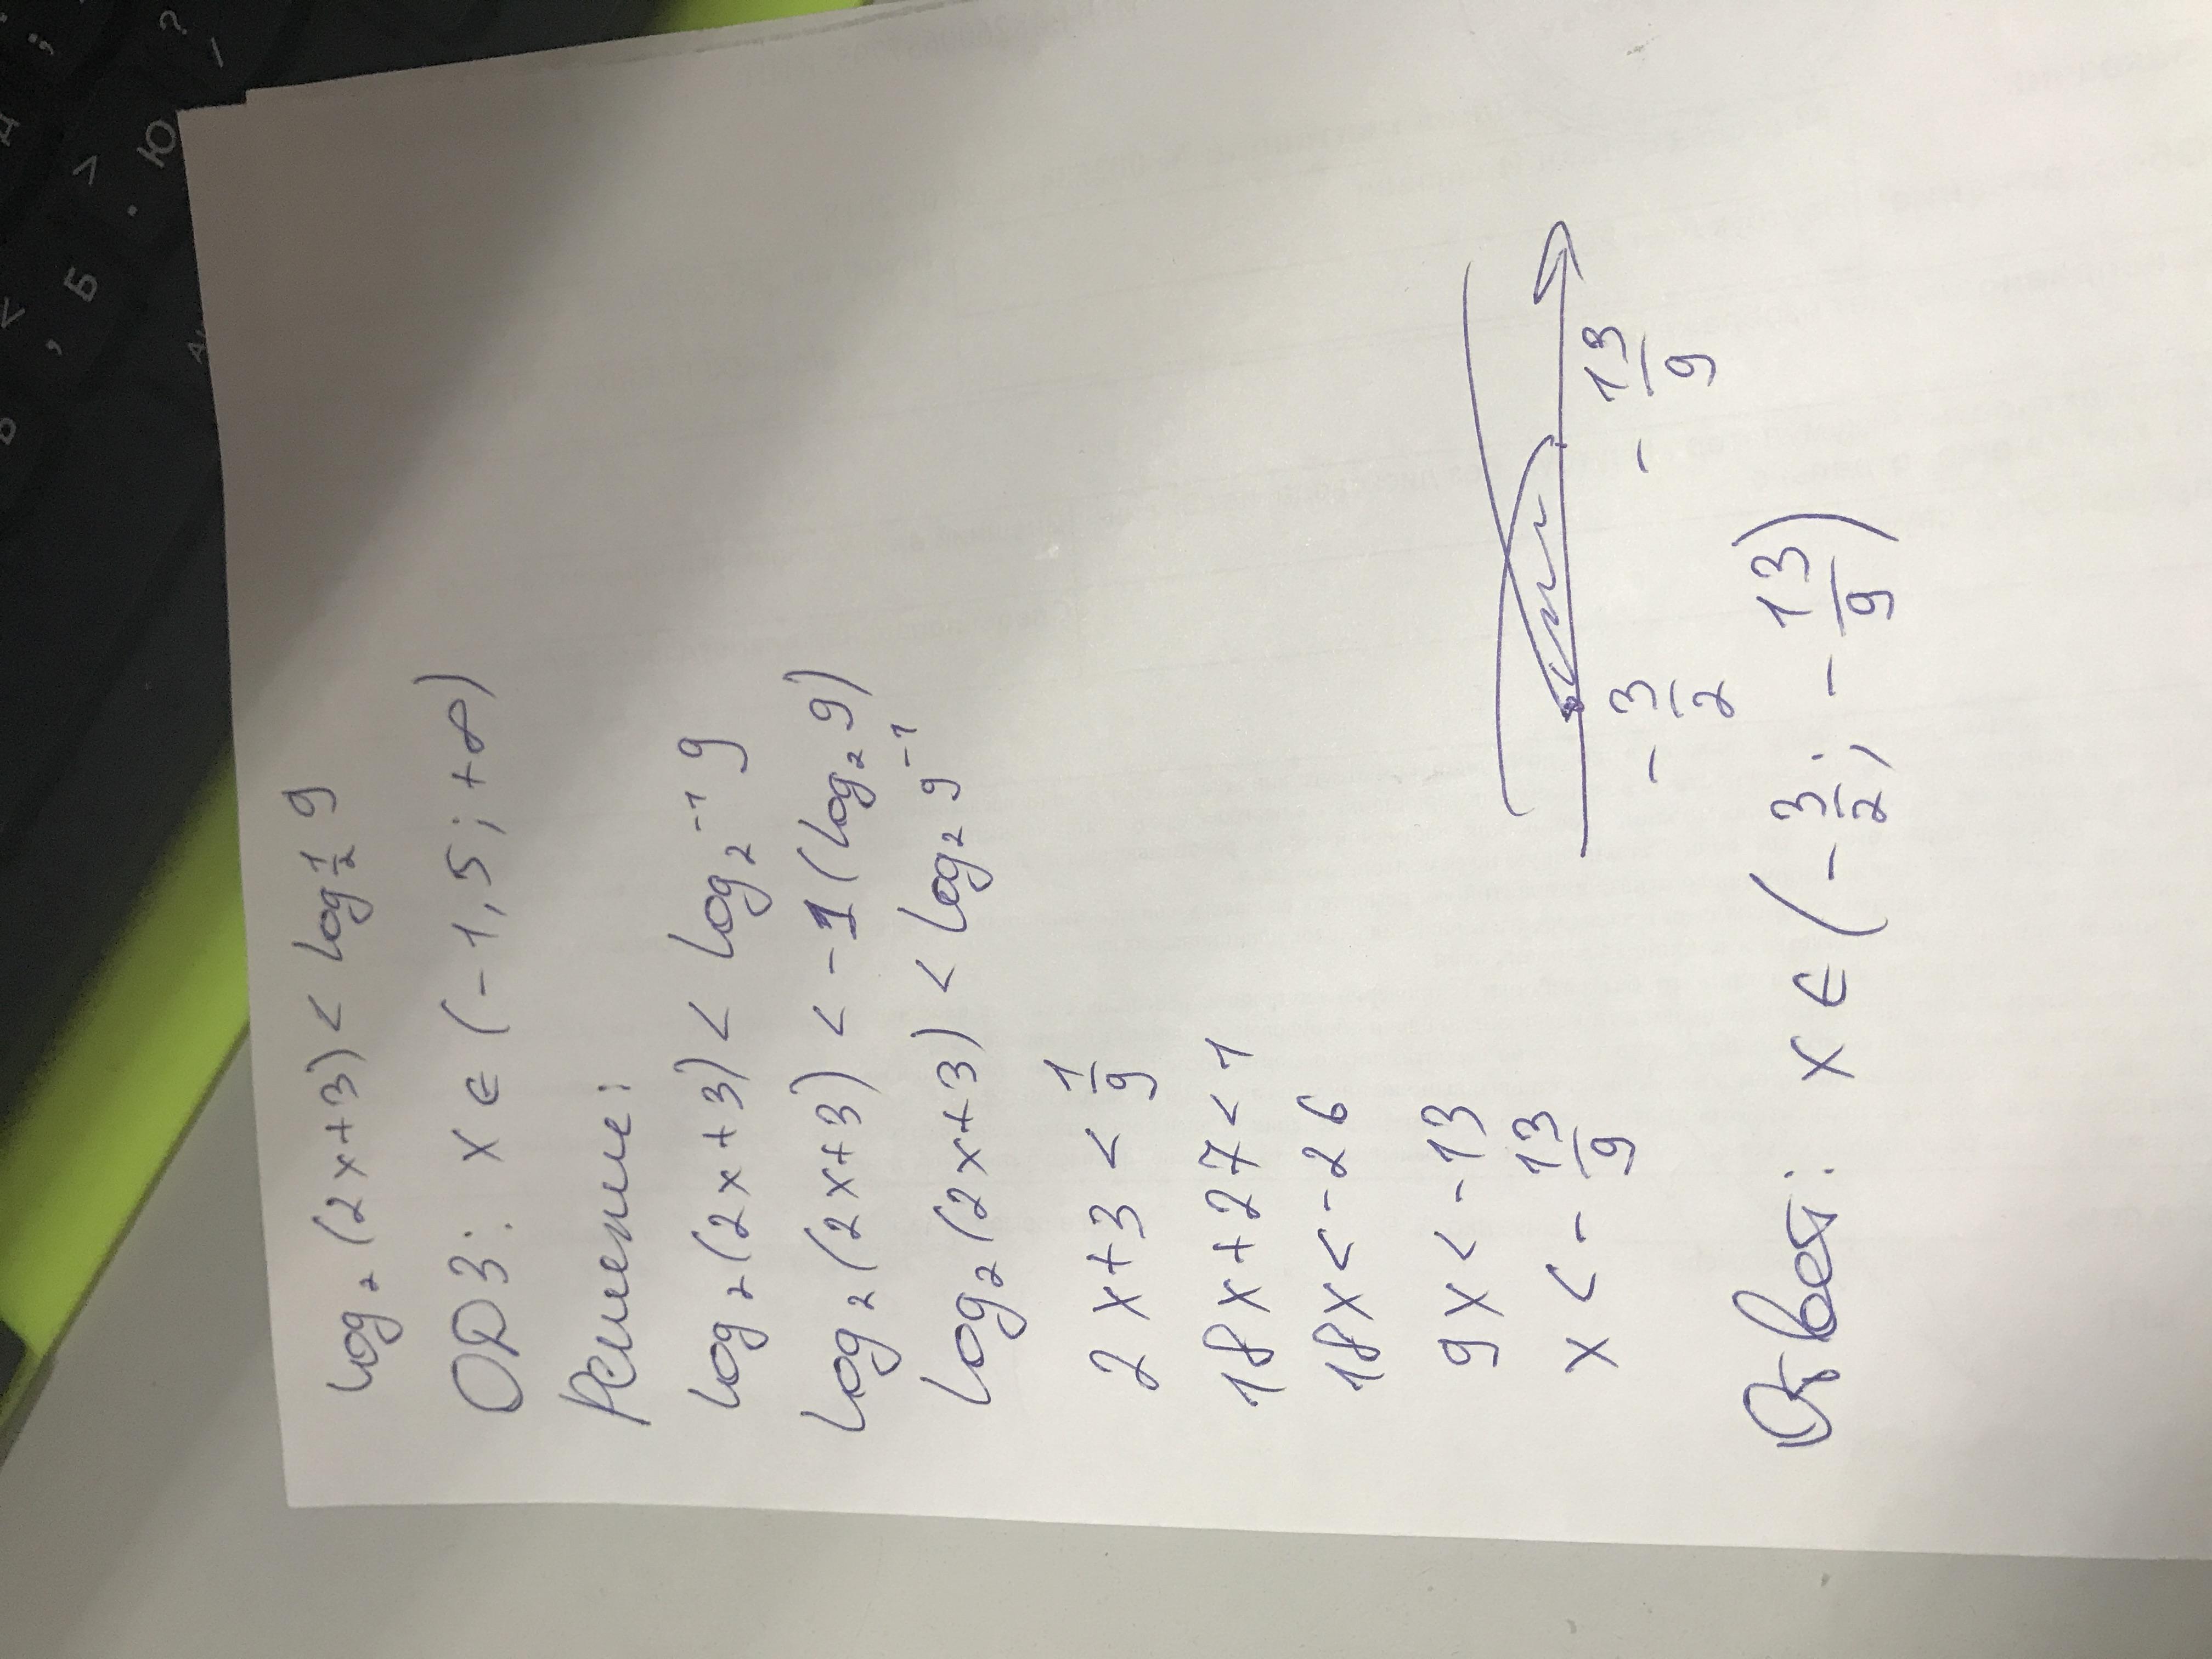 log₂(2x+3) < log_{1/2} 9
ОДЗ: x ∈ (-1,5; +∞)
Решение:
log₂(2x+3) < log_{2⁻¹} 9
log₂(2x+3) < -1(log₂ 9)
log₂(2x+3) < log₂ 9⁻¹
2x+3 < 1/9
18x+27 < 1
18x < -26
9x < -13
x < -13/9
-3/2 -13/9
Ответ: x ∈ (-3/2; -13/9)